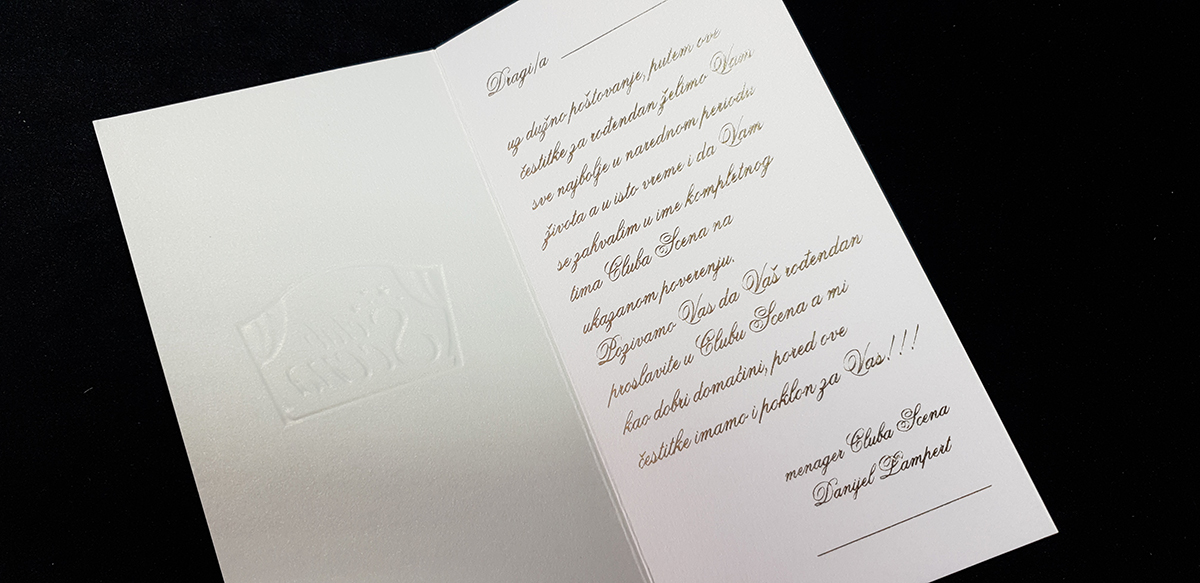 Dragi/a
uz dužno poštovanje, putem ove
čestitke za rođendan želimo Vam
sve najbolje u narednom periodu
života a u isto vreme i da Vam
se zahvalim u ime kompletnog
tima Cluba Scena na
ukazanom poverenju.
Pozivamo Vas da Vaš rođendan
proslavite u Clubu Scena a mi
kao dobri domaćini, pored ove
čestitke imamo i poklon za Vas!!!
menager Cluba Scena
Danijel Lampert